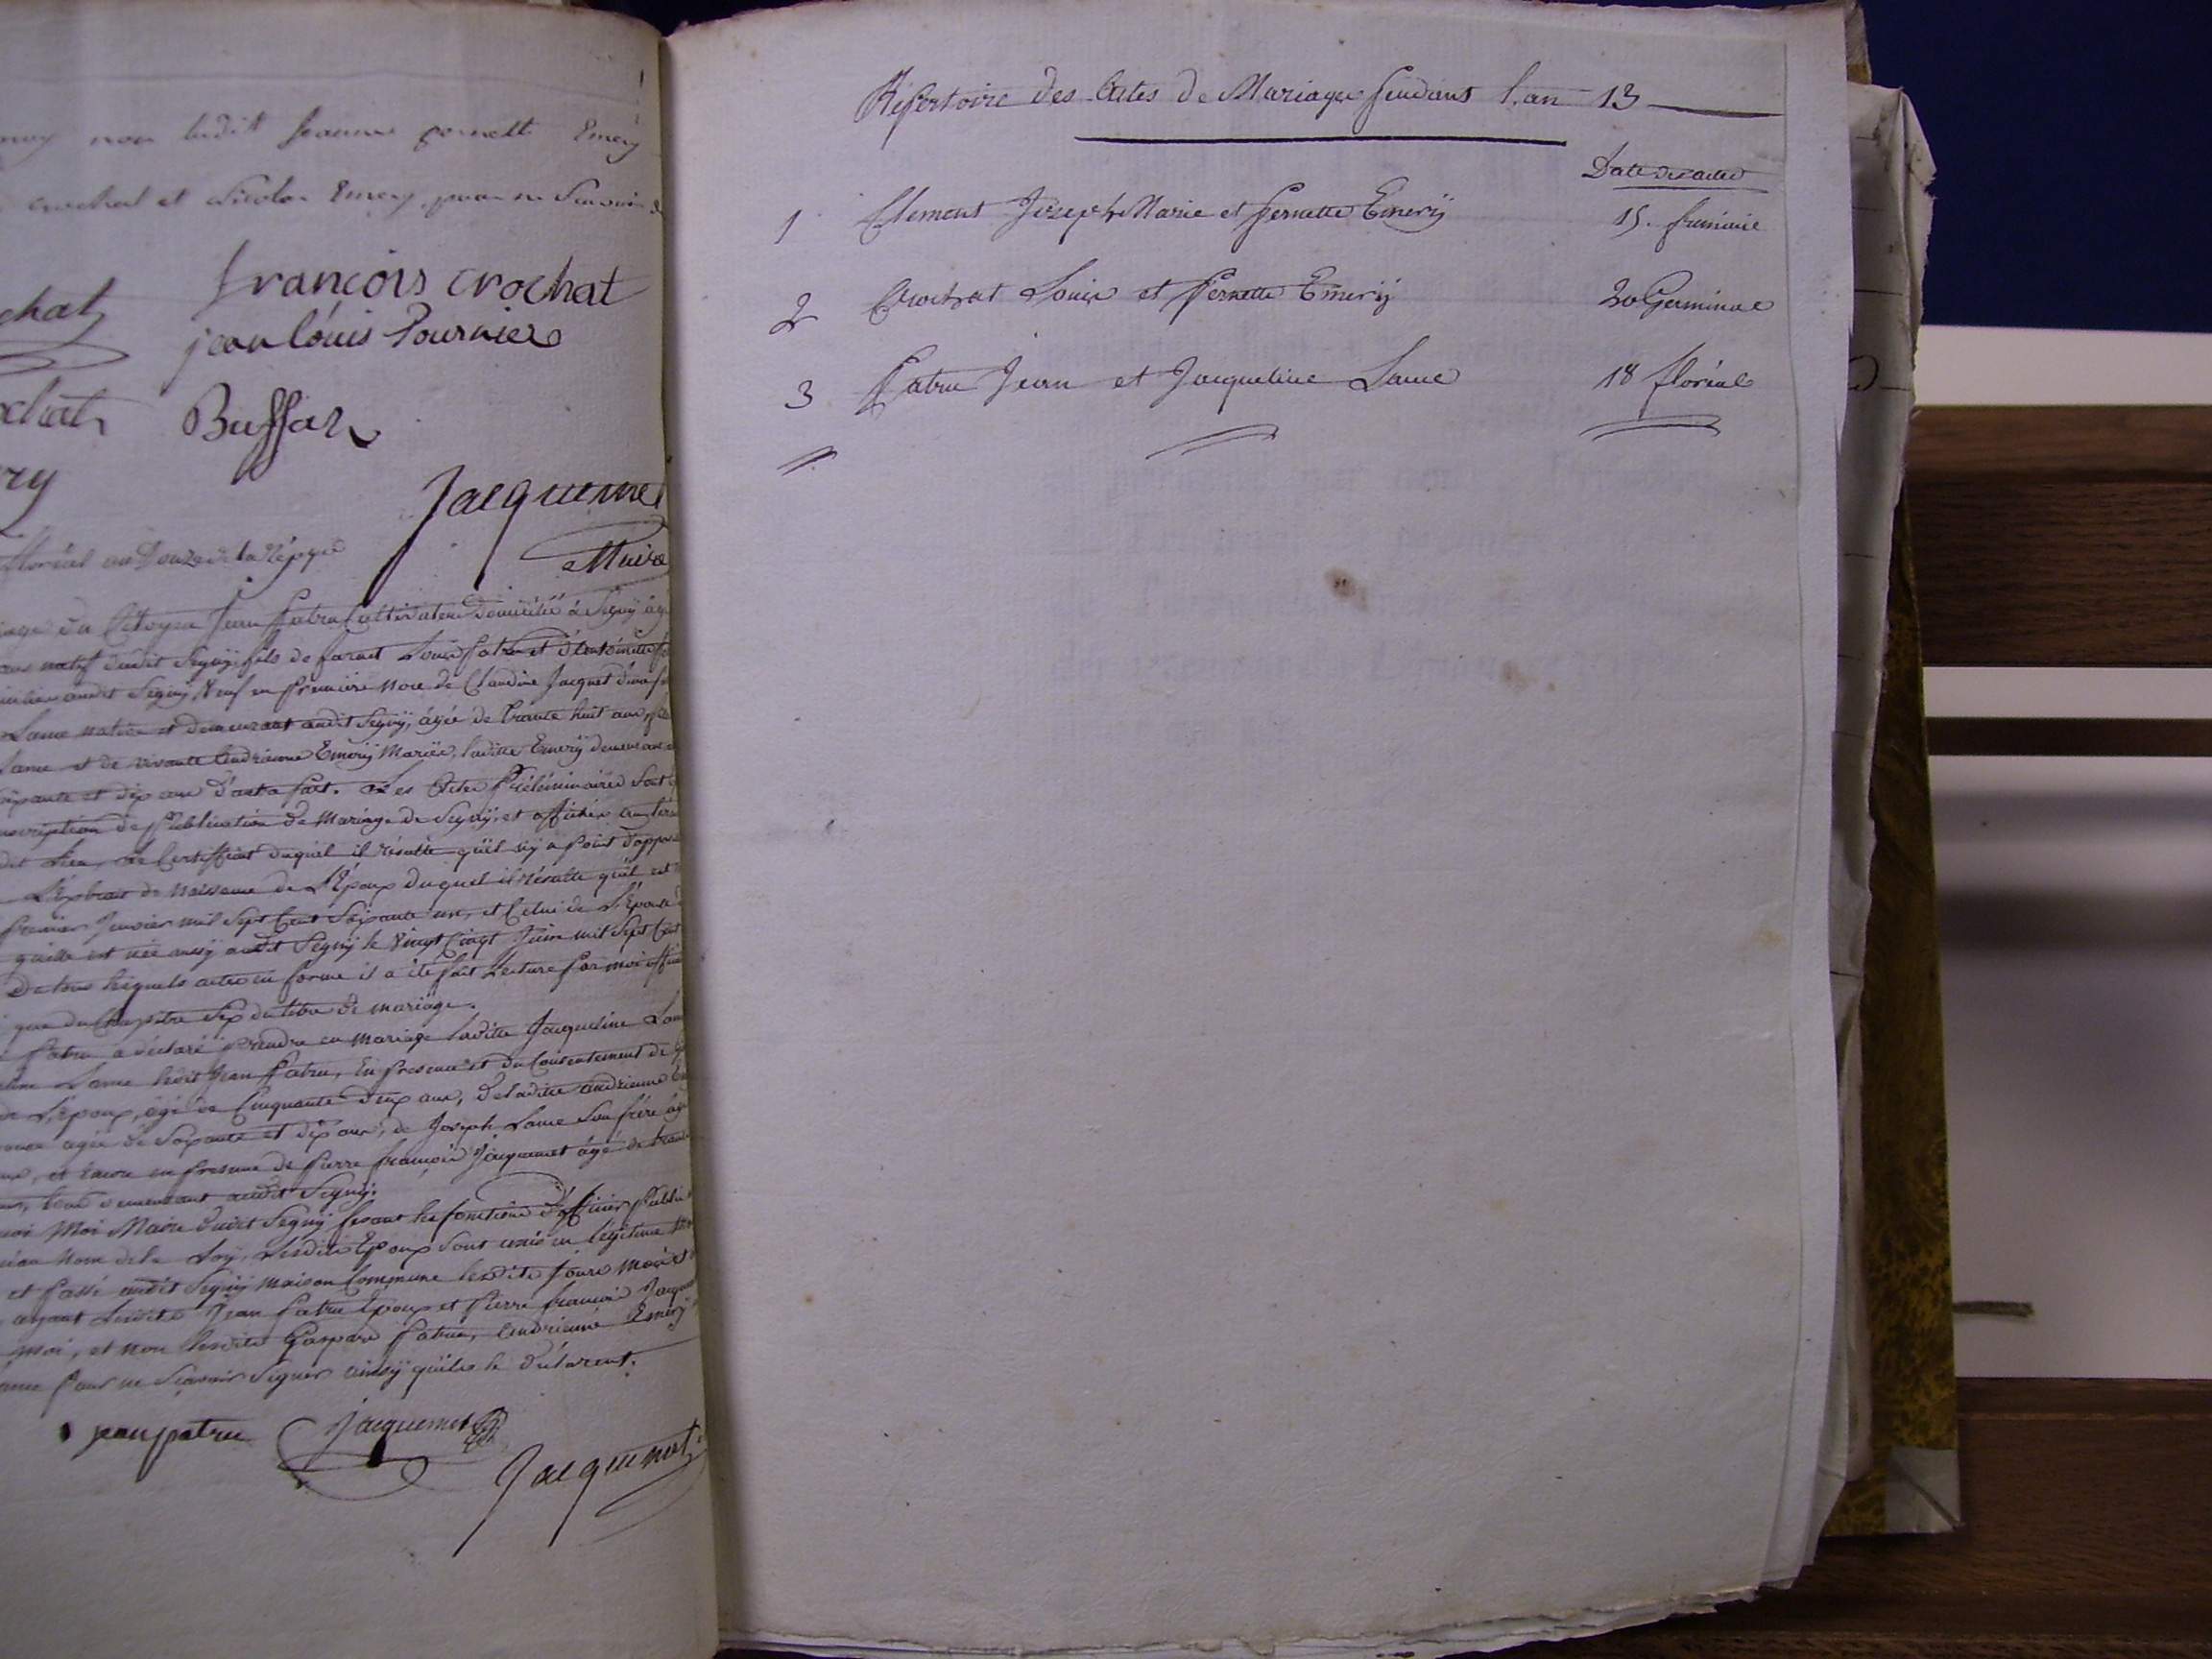 non ladit jeanne pernette Emery
crochat et Nicolas Emery, pour ne Scavoir
chat
françois crochat
jean louis Fournier
ochat
Buffaz
ry
Jacquemet
Maire
floréal an Douze de la Répque
du Citoyen Jean Patru Cultivateur domicilié à Segny
natif dudit Segny, fils de Louis Patru et d'Antoinette
audit Segny, Veuf en Première Noce de Claudine Jacquet
Lame native et demeurant audit Segny, âgée de trente huit ans
Lame et de vivante Andrianne Emery Mariée, laditte Emery
et dix ans d'autre Part. Les Actes Préléminaires Sont
de Publication de Mariage de Segny, et affichée
dit Lieu, Le Certifficat duquel il résulte qu'il n'y a Point
L'Extrait de Naissance de L'Époux duquel il résulte qu'il est
Premier Janvier mil Sept Cent Soixante un, et Celui de L'Épouse
qu'elle est née aussy audit Segny le Vingt Cinq Juin mil Sept Cent
De tous lesquels actes en forme il a été fait Lecture Par moi
que du Chapitre Six du titre de mariage.
Patru a déclaré Prendre en Mariage laditte Jacqueline
Lame ledit Jean Patru, En Presence et du Consentement de
L'Époux, âgé de Cinquante Deux ans, De laditte andrienne
agée de Soixante et dix ans, de Joseph Lame Son frère
et Encore en Presence de Pierre françois Jacquemet âgé de
tous demeurant audit Segny.
Moi Maire dudit Segny fesant les fonctions d'Officier Public
au Nom de la Loy, Lesdits Époux Sont unis en légitime
et Passé audit Segny Maison Commune lesdits Jours Mois
ayant Lesdits Jean Patru Époux et Pierre françois
moi, et non lesdits Gaspard Patru, andrienne Emery
Pour ne Scavoir Signer ainsy qu'ils le déclarent.
jean patru
Jacquemet
Jacquemet
Répertoire des Actes De Mariage Pendant l,an 13
Date des actes
1 Clement Joseph Marie et Pernette Emery 15. frimaire
2 Crochat Louis et Pernette Emery 20 Germinal
3 Patru Jean et Jacqueline Lame 18 floréal